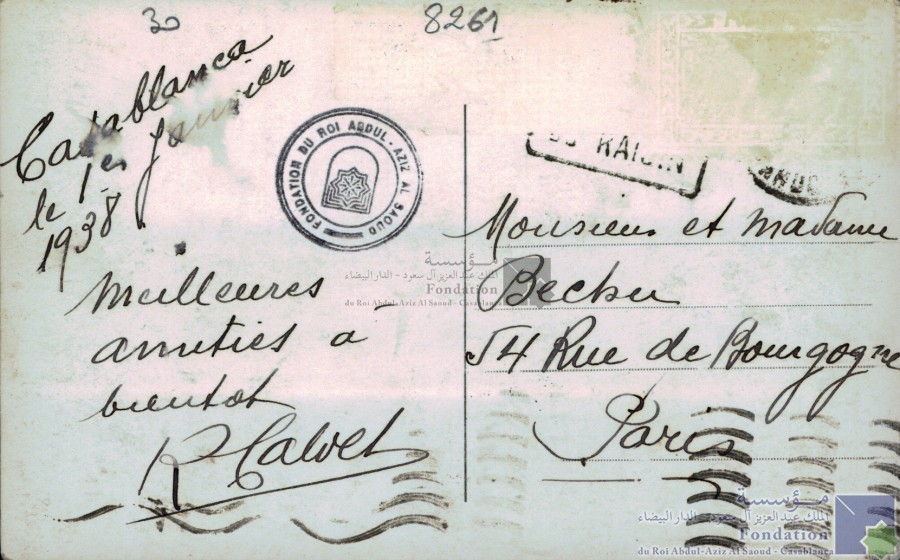 30
8261
Casablanca
le 1er Janvier
1938
FONDATION DU ROI ABDUL-AZIZ AL SAOUD
RAISIN
Meilleures
amitiés a
bientot
R Calvet
Monsieur et Madame
Bechu
54 Rue de Bourgogne
Paris
مؤسسة
الملك عبد العزيز آل سعود - الدار البيضاء
Fondation
du Roi Abdul-Aziz Al Saoud - Casablanca
مؤسسة
الملك عبد العزيز آل سعود - الدار البيضاء
Fondation
du Roi Abdul-Aziz Al Saoud - Casablanca